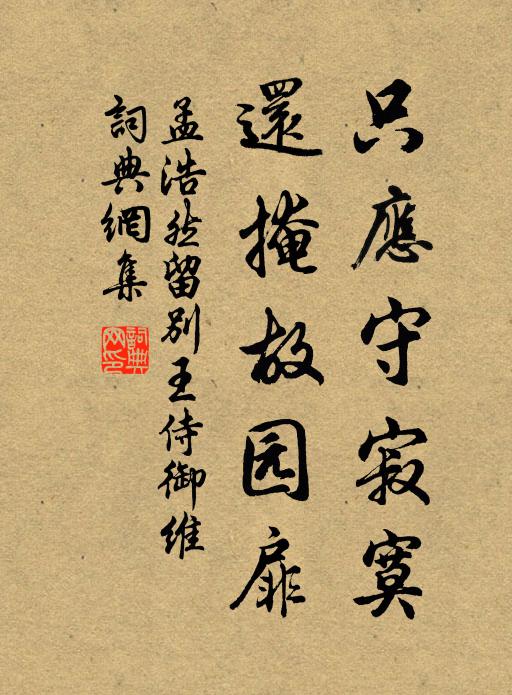 只應守寂寞
還掩故园扉
孟浩然留別王侍御維
詞典網集
詞典網印